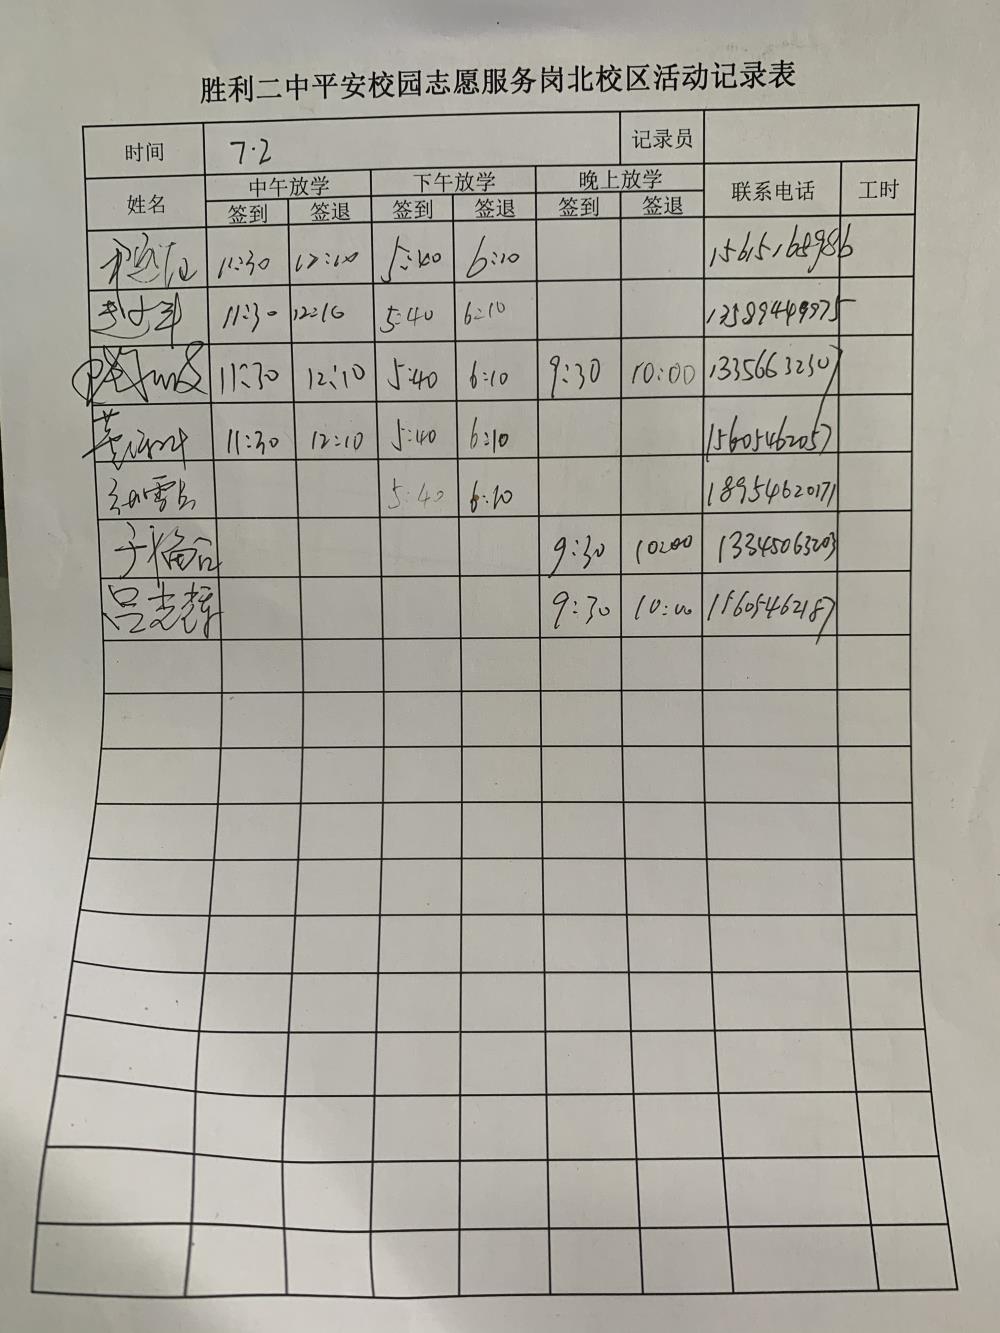 胜利二中平安校园志愿服务岗北校区活动记录表
时间 7.2 记录员
姓名 中午放学 下午放学 晚上放学 联系电话 工时
签到 签退 签到 签退 签到 签退
11:30 12:10 5:40 6:10 15615168986
11:30 12:10 5:40 6:10 13589449975
11:30 12:10 5:40 6:10 9:30 10:00 13356632307
11:30 12:10 5:40 6:10 15605462057
5:40 6:10 18954620171
9:30 10:00 13345063203
吕志辉 9:30 10:00 15605462187